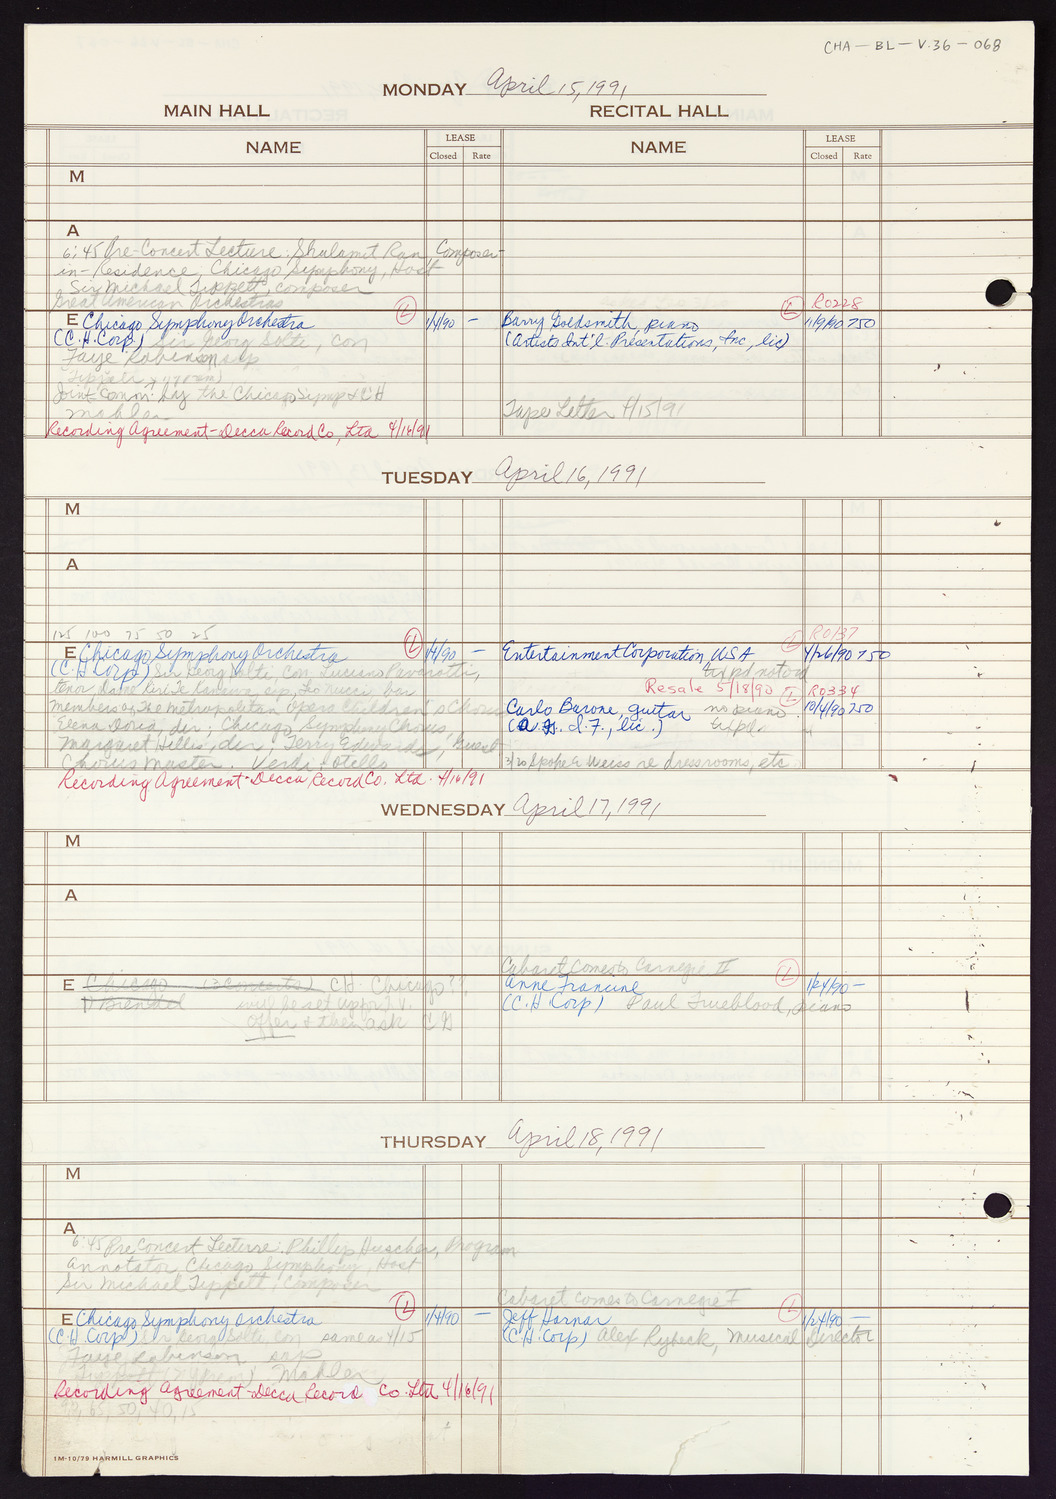 CHA - BL - V.36 - 068
MONDAY April 15, 1991
MAIN HALL RECITAL HALL
NAME LEASE NAME LEASE
Closed Rate Closed Rate
M
A
6:45 Pre-Concert Lecture: Shulamit Ran, Composer-
in-Residence, Chicago Symphony, Host
Sir Michael Tippett, composer
Great American Orchestras
L L R0228
E Chicago Symphony Orchestra 1/4/90 — Barry Goldsmith, piano 11/9/90 750
(C.H. Corp) Sir Georg Solti, con (Artists Int'l. Presentations, Inc, lic)
Faye Robinson, sop
Tippett
Joint Comm. by the Chicago Symp & CH
Mahler Tape Letter 4/15/91
Recording Agreement - Decca Record Co, Ltd 4/16/91
TUESDAY April 16, 1991
M
A
125 100 75 50 25 R0137
L L
E Chicago Symphony Orchestra 1/4/90 — Entertainment Corporation, USA 4/26/90 750
(C.H. Corp) Sir Georg Solti, Con, Luciano Pavarotti,
Resale 5/18/90 L R0334
tenor, Dame Kiri Te Kanawa, sop, Leo Nucci, bar
members of the Metropolitan Opera Children's Chorus Carlo Barone, guitar no piano 10/4/90 250
Elena Doria, dir; Chicago Symphony Chorus (A.G.I.F., lic.)
Margaret Hillis, dir; Terry Edwards, Guest
Chorus Master. Verdi: Otello 3/20 Spoke to Weiss re dressrooms, etc
Recording Agreement - Decca Record Co. Ltd. 4/16/91
WEDNESDAY April 17, 1991
M
A
Cabaret Comes to Carnegie II L
E Chicago (3 Concerts) CH. Chicago?? Anne Francine 1/24/90 —
Brendel (C.H. Corp) Paul Trueblood, piano
offer & then ask CH
THURSDAY April 18, 1991
M
A
6:45 Pre Concert Lecture: Phillip Huscher, Program
Annotator Chicago Symphony, Host
Sir Michael Tippett, Composer
Cabaret Comes to Carnegie I
L L
E Chicago Symphony Orchestra 1/4/90 — Jeff Harnar 1/24/90 —
(C.H. Corp) Sir Georg Solti, Con same as 4/15 (C.H. Corp) Alex Rybeck, Musical Director
Faye Robinson sop
Tippett Mahler
Recording Agreement - Decca Record Co. Ltd 4/16/91
90, 65, 50, 40, 15
1M-10/79 HARMILL GRAPHICS